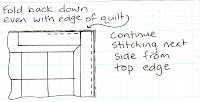 Fold back down
even with edge of quilt
Continue
stitching next
side from
top edge